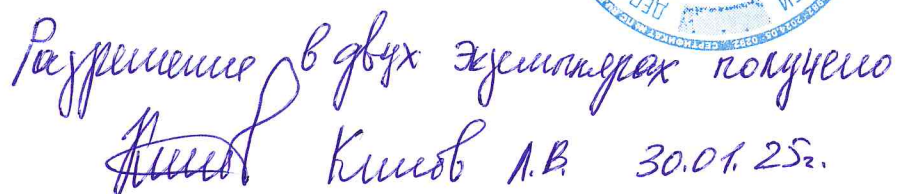 Разрешение в двух экземплярах получено
Климов Л.В. 30.01.25г.